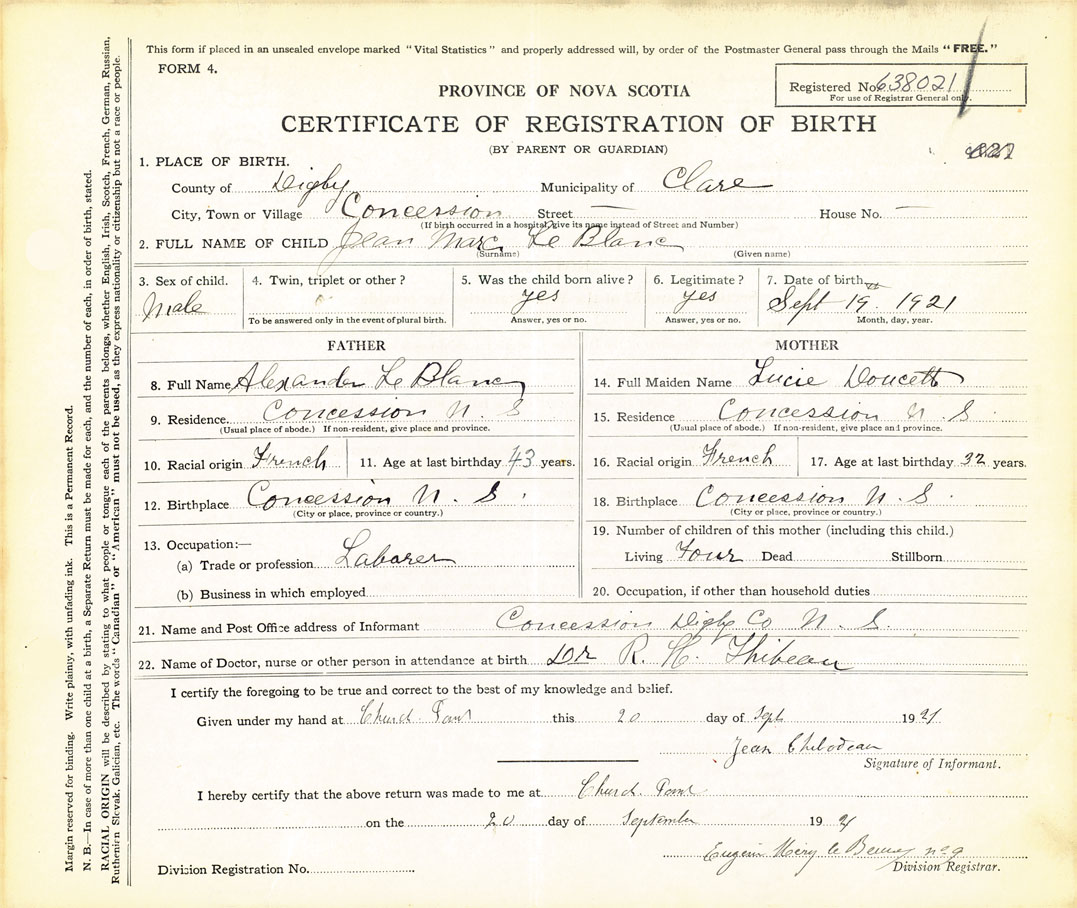 This form if placed in an unsealed envelope marked "Vital Statistics" and properly addressed will, by order of the Postmaster General pass through the Mails "FREE."
FORM 4.
Registered No. 638021
For use of Registrar General only.
PROVINCE OF NOVA SCOTIA
CERTIFICATE OF REGISTRATION OF BIRTH
(BY PARENT OR GUARDIAN)
1. PLACE OF BIRTH.
County of Digby Municipality of Clare
City, Town or Village Concession Street — House No. —
(If birth occurred in a hospital, give its name instead of Street and Number)
2. FULL NAME OF CHILD Jean Marc Le Blanc
(Surname) (Given name)
3. Sex of child. Male
4. Twin, triplet or other?
To be answered only in the event of plural birth.
5. Was the child born alive? yes
Answer, yes or no.
6. Legitimate? yes
Answer, yes or no.
7. Date of birth
Sept 19 1921
Month, day, year.
FATHER
8. Full Name Alexander Le Blanc
9. Residence Concession N. S
(Usual place of abode.) If non-resident, give place and province.
10. Racial origin French 11. Age at last birthday 43 years.
12. Birthplace Concession N. S.
(City or place, province or country.)
13. Occupation:—
(a) Trade or profession Laborer
(b) Business in which employed
MOTHER
14. Full Maiden Name Lucie Doucett
15. Residence Concession N. S.
(Usual place of abode.) If non-resident, give place and province.
16. Racial origin French 17. Age at last birthday 32 years.
18. Birthplace Concession N. S.
(City or place, province or country.)
19. Number of children of this mother (including this child.)
Living Four Dead Stillborn
20. Occupation, if other than household duties
21. Name and Post Office address of Informant Concession Digby Co N. S.
22. Name of Doctor, nurse or other person in attendance at birth Dr R. H. Thibeau
I certify the foregoing to be true and correct to the best of my knowledge and belief.
Given under my hand at Church Point this 20 day of Sept 1921
Jean
Signature of Informant.
I hereby certify that the above return was made to me at Church Point
on the 20 day of September 1921
no 9
Division Registration No. Division Registrar.
Margin reserved for binding. Write plainly, with unfading ink. This is a Permanent Record.
N. B.—In case of more than one child at a birth, a Separate Return must be made for each, and the number of each, in order of birth, stated.
RACIAL ORIGIN will be described by stating to what people or tongue each of the parents belongs, whether English, Irish, Scotch, French, German, Russian,
Ruthenian Slovak, Galician, etc. The words "Canadian" or "American" must not be used, as they express nationality or citizenship but not a race or people.